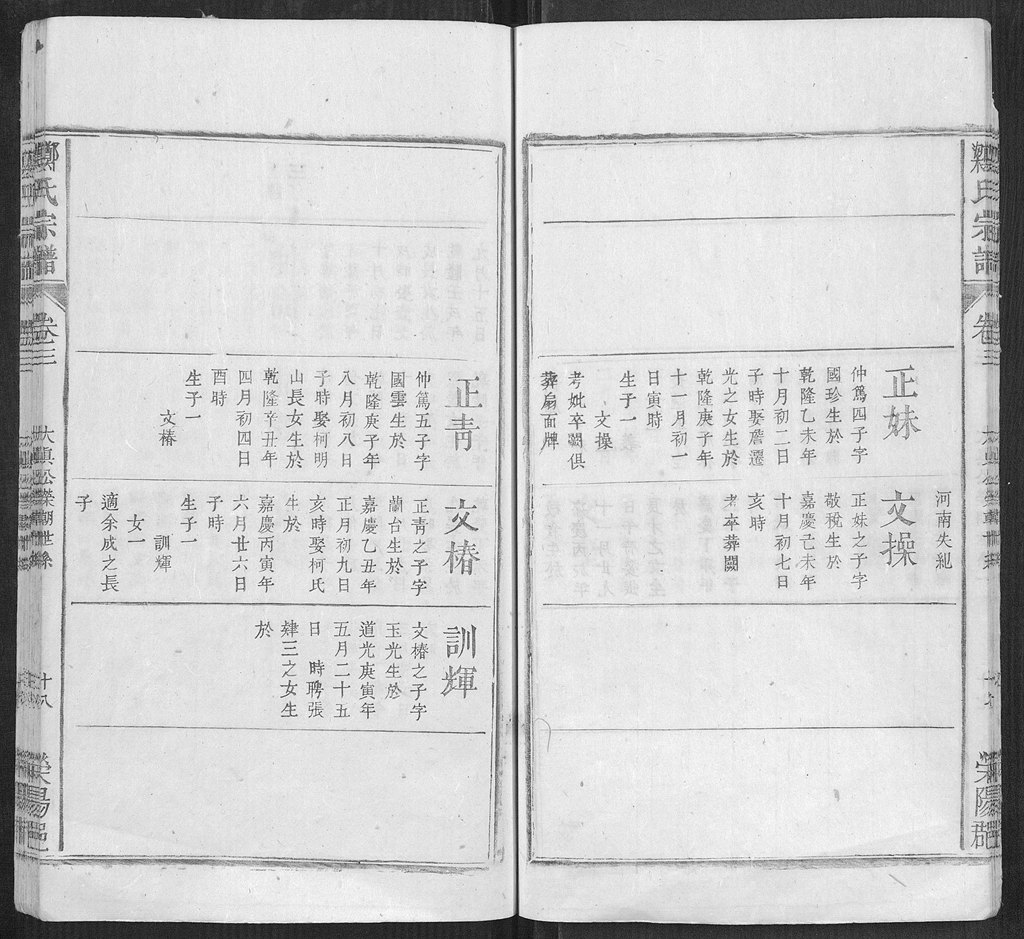 河南失紀
正妹
仲篤四子字
國珍生於
乾隆乙未年
十月初二日
子時娶詹遷
光之女生於
乾隆庚子年
十一月初一
日寅時
生子一
文操
考妣卒闕俱
葬扇面牌
文操
正妹之子字
敬稅生於
嘉慶己未年
十月初七日
亥時
考卒葬闕
鄭氏宗譜
卷三
滎陽郡
正青
仲篤五子字
國雲生於
乾隆庚子年
八月初八日
子時娶柯明
山長女生於
乾隆辛丑年
四月初四日
酉時
生子一
文椿
文椿
正青之子字
蘭台生於
嘉慶乙丑年
正月初九日
亥時娶柯氏
生於
嘉慶丙寅年
六月廿六日
子時
生子一
訓輝
女一
適余成之長
子
訓輝
文椿之子字
玉光生於
道光庚寅年
五月二十五
日 時聘張
肄三之女生
於
鄭氏宗譜
卷三
十八